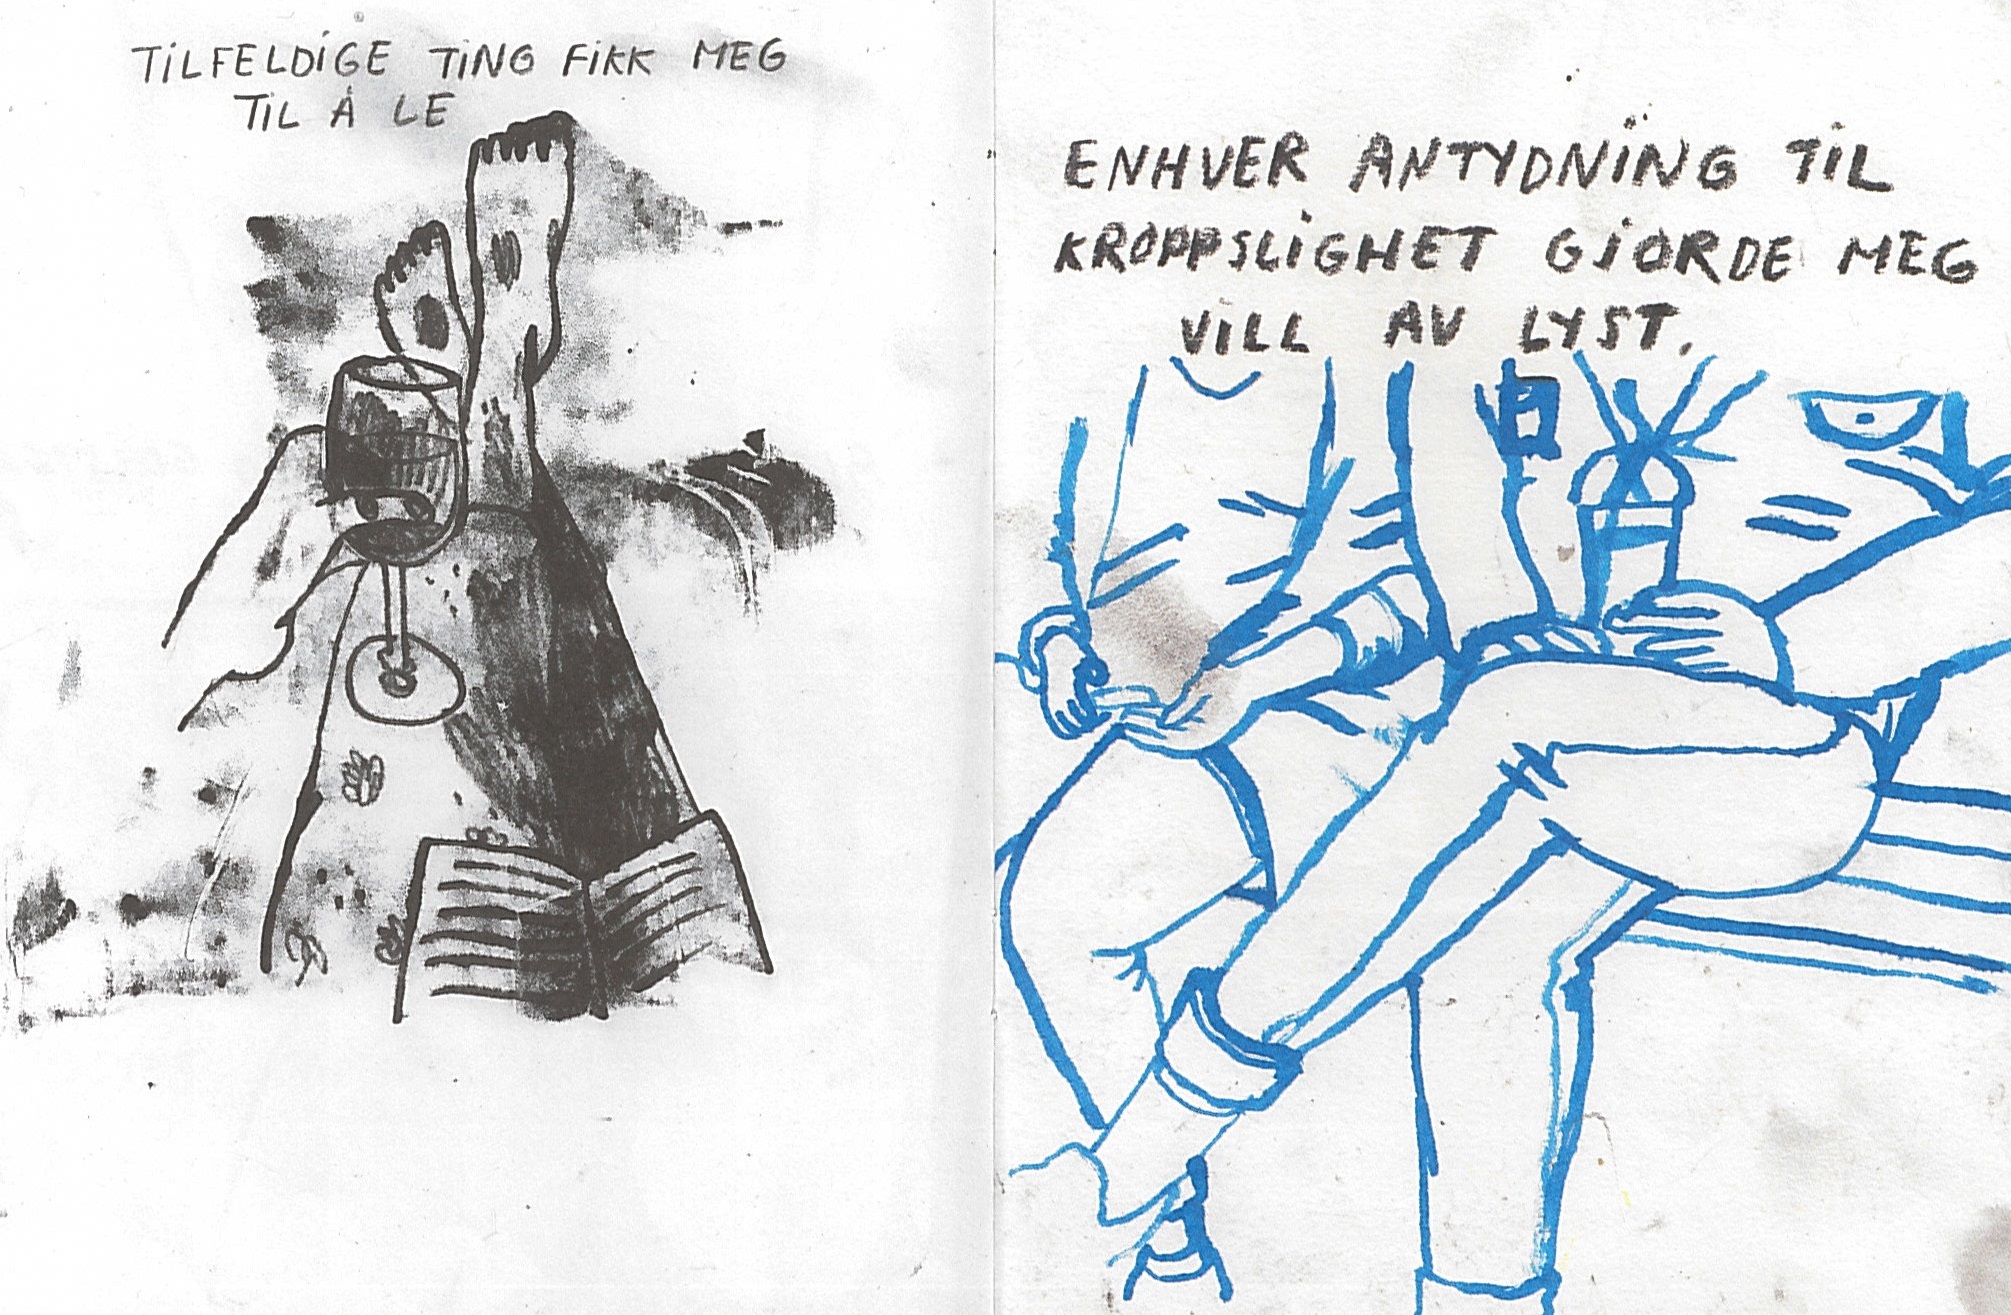 TILFELDIGE TING FIKK MEG
TIL Å LE
ENHVER ANTYDNING TIL
KROPPSLIGHET GJORDE MEG
VILL AV LYST.